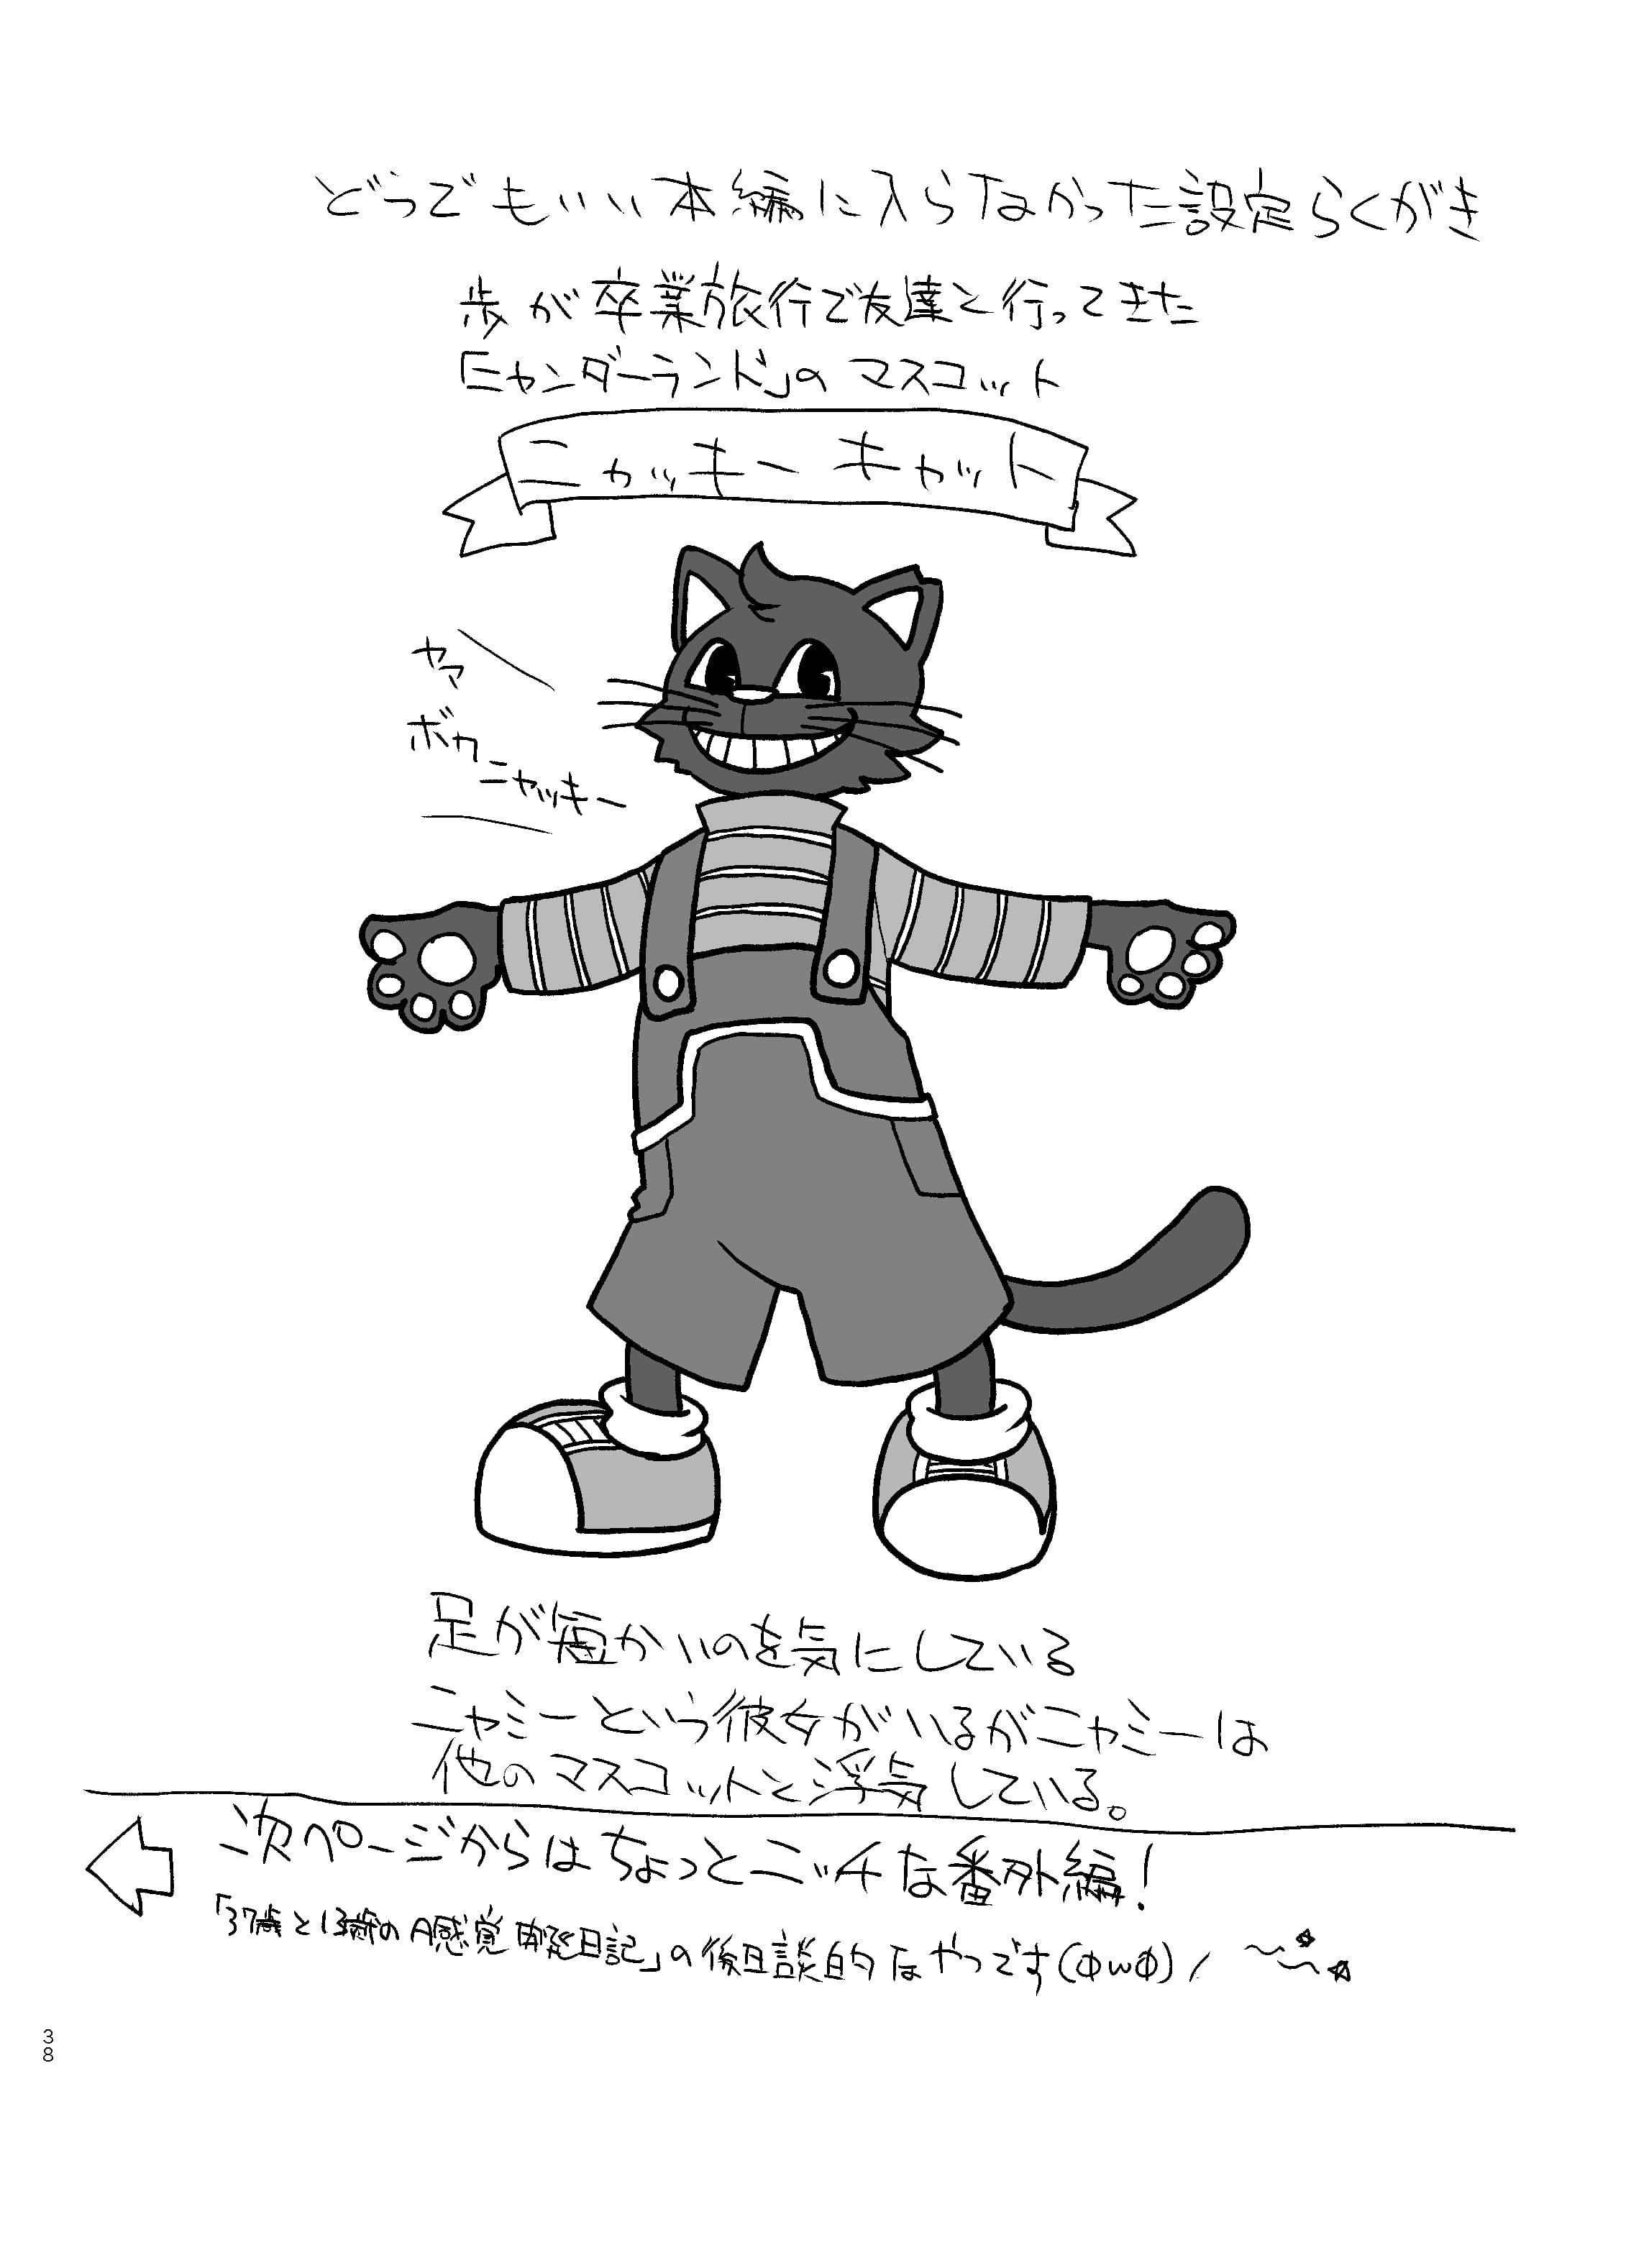 どうでもいい本編に入らなかった設定らくがき
歩が卒業旅行で友達と行ってきた
「ニャンダーランド」のマスコット
ニャッキーキャット
ヤア
ボク
ニャッキー
足が短かいのを気にしている
ニャミーという彼女がいるがニャミーは
他のマスコットと浮気している。
次ページからはちょっとニッチな番外編!
「37歳と13歳のA感覚開発日記」の後日談的なやつです(ΦωΦ)ノ
38